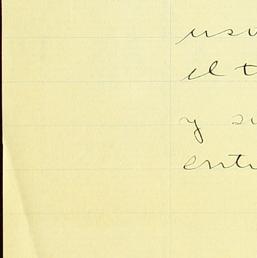 usu
el t
y su
entr